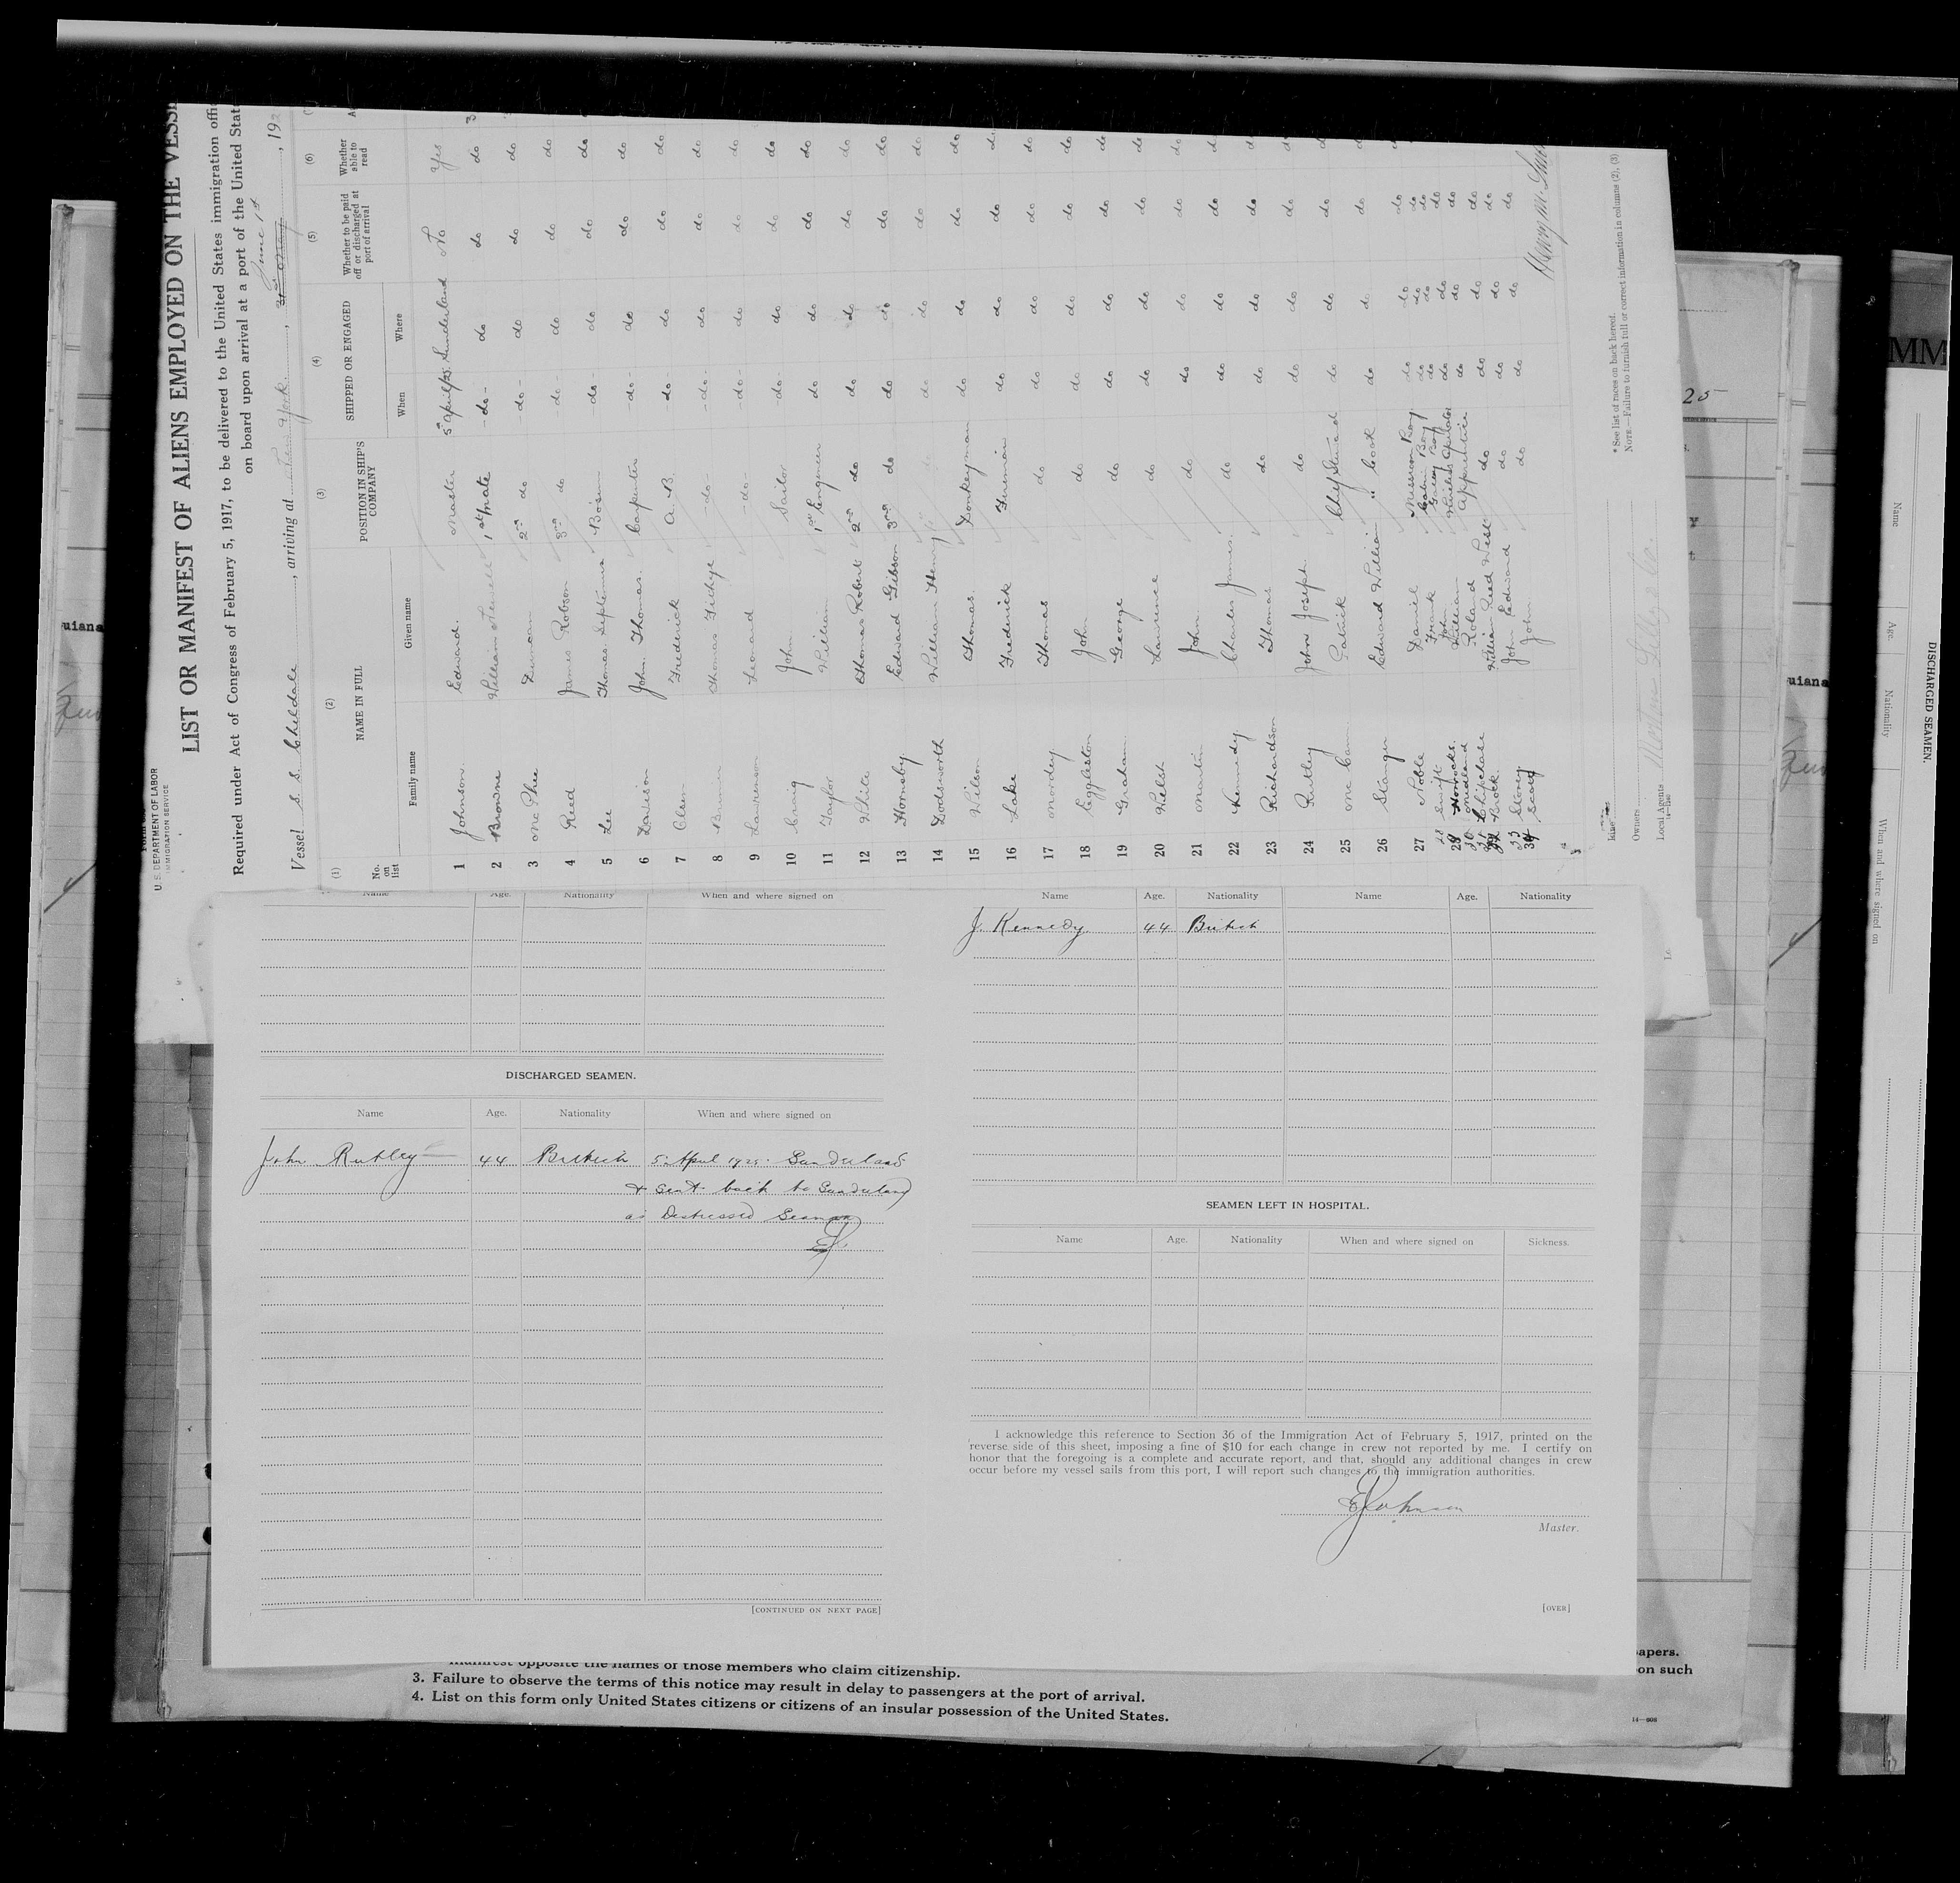 U.S. DEPARTMENT OF LABOR
IMMIGRATION SERVICE
LIST OR MANIFEST OF ALIENS EMPLOYED ON THE VESS
Required under Act of Congress of February 5, 1917, to be delivered to the United States immigration offi
on board upon arrival at a port of the United Stat
Vessel S. S. Childale, arriving at New York, June 1st, 192
(1) (2) (3) (4) (5) (6)
No. on list NAME IN FULL POSITION IN SHIP'S COMPANY SHIPPED OR ENGAGED Whether to be paid off or discharged at port of arrival Whether able to read
Family name Given name When Where
1 Johnson Edward Master 5th April Sunderland No Yes
2 Browne William 1st Mate -do- do do do
3 Duncan 2nd do -do- do do do
4 Reed James Robson 3rd do do do do do
5 Lee Thomas Septimus Bo'sun do- do do do
6 Davison John Thomas Carpenter -do- do do do
7 Olsen Frederick A.B. do- do do do
8 Thomas -do- -do- do do do
9 Lawrenson Leonard -do- -do- do do do
10 Craig John Sailor do- do do do
11 Taylor William 1st Engineer do do do do
12 White Thomas Robert 2nd do do do do do
13 Hornsby Edward Gibson 3rd do do do do do
14 Dodsworth William Henry do do do do
15 Wilson Thomas Donkeyman do do do do
16 Lake Frederick Fireman do do do do
17 Mordey Thomas do do do do do
18 Eggleston John do do do do do
19 Graham George do do do do do
20 Walsh Lawrence do do do do do
21 Martin John do do do do do
22 Kennedy Charles James do do do do do
23 Richardson Thomas do do do do do
24 Rutley John Joseph do do do do do
25 Patrick Chf Steward do do do do
26 Stanger Edward William " Cook do do do
27 Noble Daniel Messroom Boy do do do
28 Swift Frank Cabin Boy do do do
29 Horrocks John Galley Boy do do do
30 Medland William Wireless Operator do do do
31 Chipchase Roland Apprentice do do do
32 Brock William Reed West do do do do
33 Storey John Edward do do do do
34 Scott John do do do do
* See list of races on back hereof.
NOTE.—Failure to furnish full or correct information in columns (2), (3)
Owners
Local Agents
Name Age. Nationality When and where signed on
DISCHARGED SEAMEN.
Name Age. Nationality When and where signed on
John Rutley 44 British 5 April 1925 Sunderland
& sent back to Sunderland
as Distressed Seaman
EJ
[CONTINUED ON NEXT PAGE]
Name Age. Nationality Name Age. Nationality
J. Kennedy 44 British
SEAMEN LEFT IN HOSPITAL.
Name Age. Nationality When and where signed on Sickness.
I acknowledge this reference to Section 36 of the Immigration Act of February 5, 1917, printed on the
reverse side of this sheet, imposing a fine of $10 for each change in crew not reported by me. I certify on
honor that the foregoing is a complete and accurate report, and that, should any additional changes in crew
occur before my vessel sails from this port, I will report such changes to the immigration authorities.
E Johnson
Master.
[OVER]
opposite the names of those members who claim citizenship.
3. Failure to observe the terms of this notice may result in delay to passengers at the port of arrival.
4. List on this form only United States citizens or citizens of an insular possession of the United States.
papers.
on such
14—808
25
uiana
uiana
MM
DISCHARGED SEAMEN.
Name Age. Nationality When and where signed on